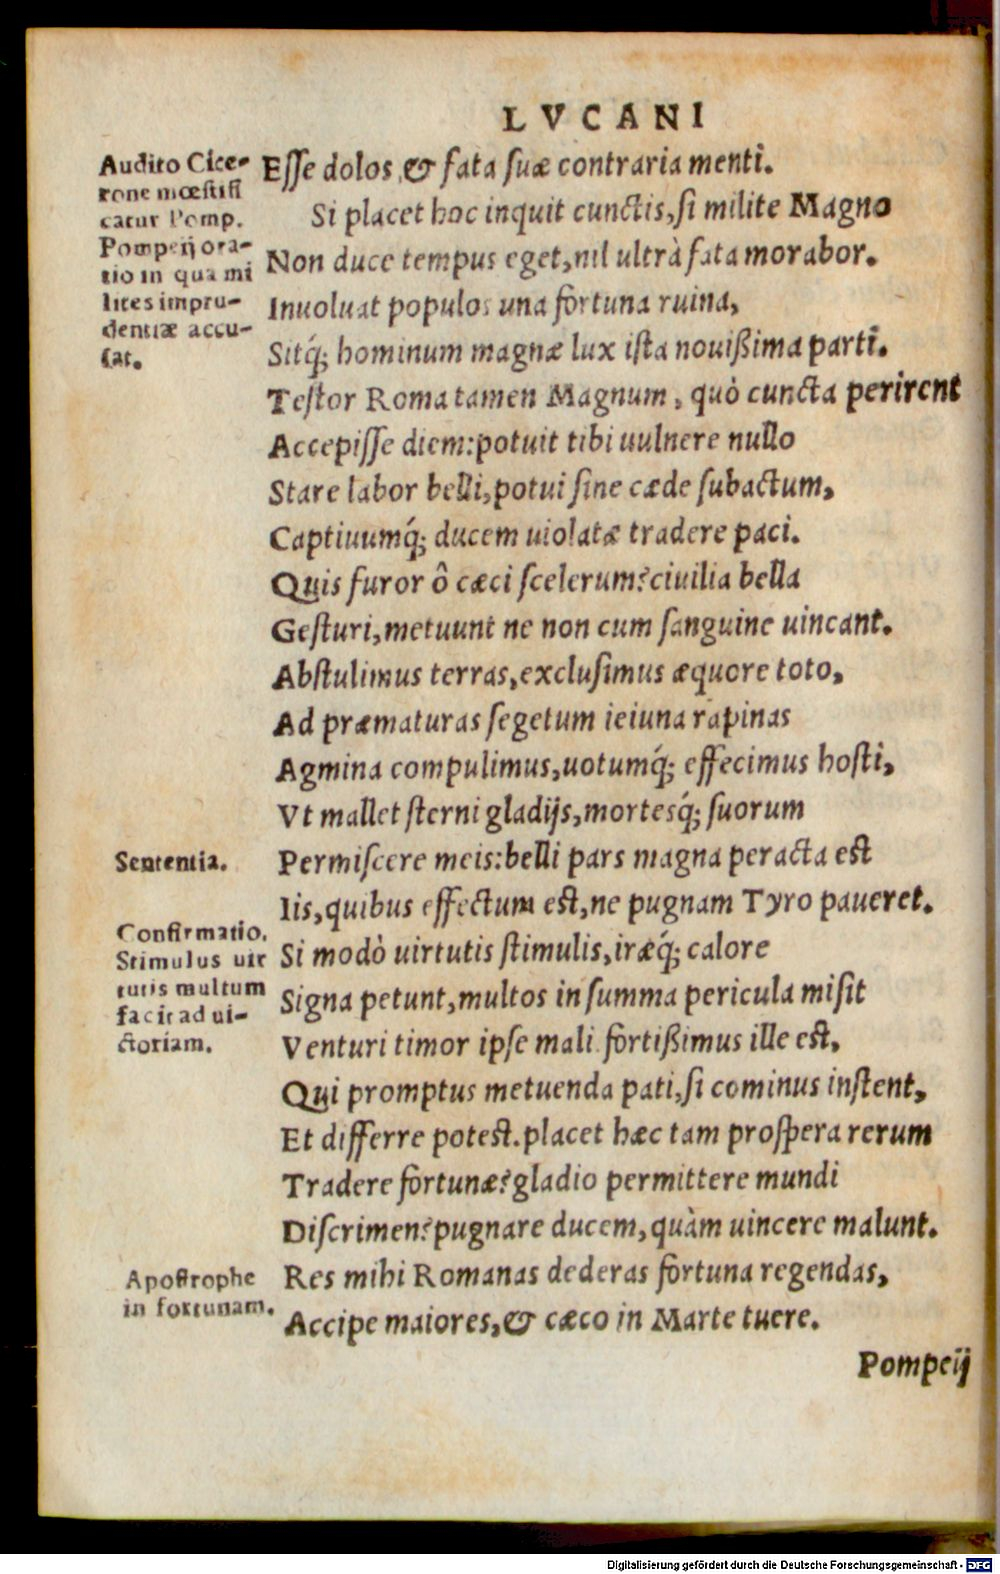 LVCANI
Audito Cice-
rone mœstifi
catur Pomp.
Pompeij ora-
tio in qua mi
lites impru-
dentiæ accu-
sat.
Esse dolos, & fata suæ contraria menti.
Si placet hoc inquit cunctis, si milite Magno
Non duce tempus eget, nil ultrà fata morabor.
Inuoluat populos una fortuna ruina,
Sitq́; hominum magnæ lux ista nouißima parti.
Testor Roma tamen Magnum, quò cuncta perirent
Accepisse diem: potuit tibi uulnere nullo
Stare labor belli, potui sine cæde subactum,
Captiuumq́; ducem uiolatæ tradere paci.
Quis furor ô cæci scelerum? ciuilia bella
Gesturi, metuunt ne non cum sanguine uincant.
Abstulimus terras, exclusimus æquore toto,
Ad præmaturas segetum ieiuna rapinas
Agmina compulimus, uotumq́; effecimus hosti,
Vt mallet sterni gladijs, mortesq́; suorum
Sententia.
Permiscere meis: belli pars magna peracta est
Iis, quibus effectum est, ne pugnam Tyro paueret.
Confirmatio.
Stimulus uir
tutis multum
facit ad ui-
ctoriam.
Si modò uirtutis stimulis, iræq́; calore
Signa petunt, multos in summa pericula misit
Venturi timor ipse mali. fortißimus ille est,
Qui promptus metuenda pati, si cominus instent,
Et differre potest. placet hæc tam prospera rerum
Tradere fortunæ? gladio permittere mundi
Discrimen? pugnare ducem, quàm uincere malunt.
Apostrophe
in fortunam.
Res mihi Romanas dederas fortuna regendas,
Accipe maiores, & cæco in Marte tuere.
Pompeij
Digitalisierung gefördert durch die Deutsche Forschungsgemeinschaft - DFG